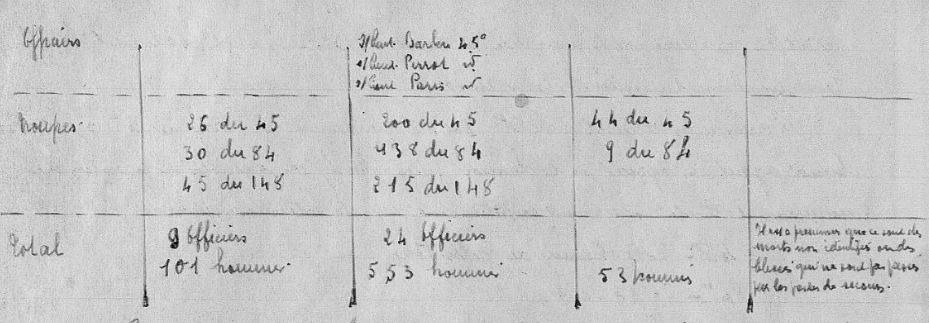 Officiers
s/Lieut. Barbere 45°
s/Lieut. Perrot id
s/Lieut Paris id
Troupes.
26 du 45
200 du 45
44 du 45
30 du 84
138 du 84
9 du 84
45 du 148
215 du 148
Total
9 Officiers
24 Officiers
101 hommes
553 hommes
53 hommes
Il est à présumer que ce sont des
morts non identifiés ou des
blessés qui ne sont pas passés
par les postes de secours.